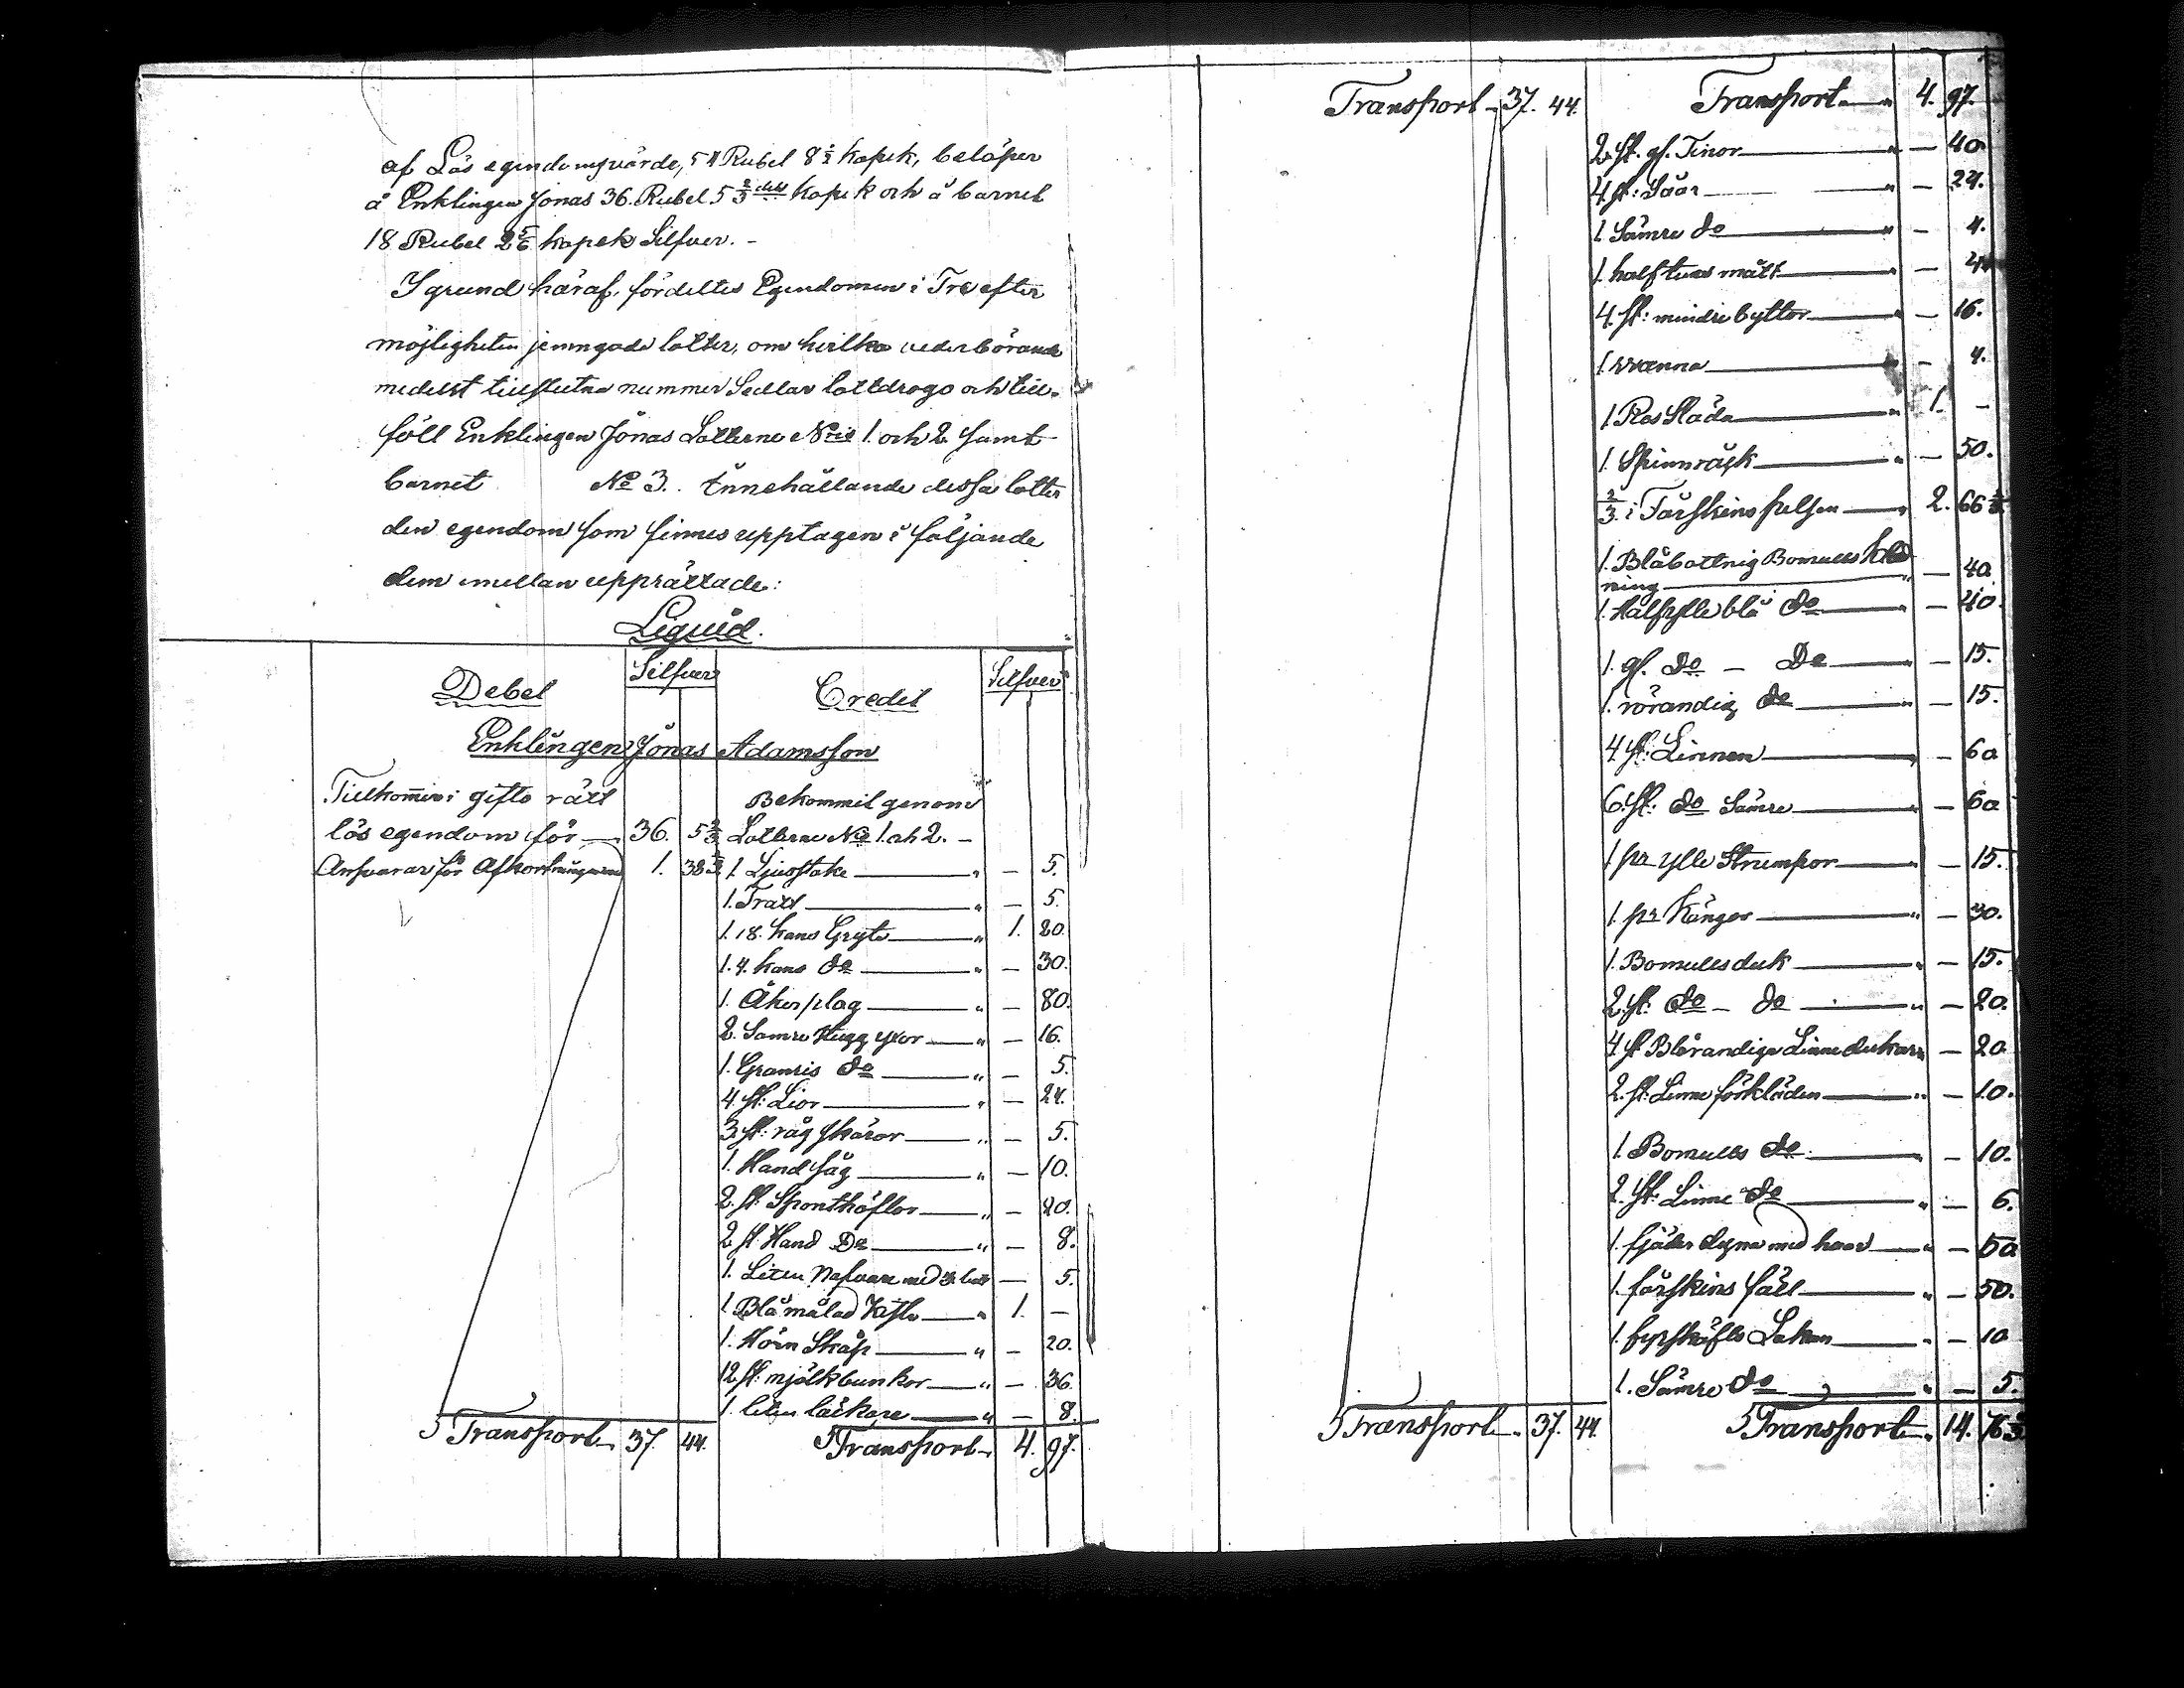 af Lös egendomsvärde, 54 Rubel 8 1/2 kopek, belöper
å Enklingen Jonas 36. Rubel 5 2/3 kopek och å barnet
18 Rubel 2 5/6 kopek Silfver. -
I grund häraf, fördeltes Egendomen i Tre efter
möjligheten jemngoda lotter, om hvilka vederbörande
medelst tillslutna nummer Sedlar lottdrogo och till-
föll Enklingen Jonas Lotterne N:ris 1. och 2. samt
barnet No 3. Innehållande dessa lotter
den egendom som finnes upptagen i följande
dem emellan upprättade:
Liquid.
Debet Silfver Credit Silfver
Enklingen Jonas Adamsson
Tillkommer i gifto rätt Bekommit genom
lös egendom för — 36. 5 2/3 Lotterne No 1. och 2. -
Ansvarar för Afkortningarne 1. 38 1/3 1. Ljusstake — " — 5.
1. Tratt — " — 5.
1. 18. kans Gryta — " 1. 20.
1. 4. kans do — " — 30.
1. Åkerplog — " — 80.
2. Sämre Hugg yxor — " — 16.
1. do — " — 5.
4. st: Lior — " — 24.
3. st: råg skäror — " — 5.
1. Hand såg — " — 10.
2. st: Sponthöflar — " — 20.
2 st Hand Do — " — 8.
1. Liten Nafvare med — 5.
1. Blå målad Kista — " 1. —
1. Hörn Skåp — " — 20.
12 st: mjölkbunkor — " — 36.
1. liten — " — 8.
Transport — 37. 44. Transport — 4. 97.
Transport — 37. 44. Transport — " 4. 97.
2. st. gl. Tinor — " — 40.
4. st: Såar — " — 24.
1. Sämre do — " — 4.
1. half tuns mått — " — 4.
4. st: mindre byttor — " — 16.
1. wanna — " — 4.
1. Res Släda — " 1. —
1. Spinnråck — " — 50.
2/3 i Fårskins pelsen — " 2. 66 2/3
1. Blåbottnig Bomulls kläd
ning — " — 40.
1. Halfylle blå do — " — 40.
1. gl. do — Do — " — 15.
1. rörandig do — " — 15.
4 st: Linnen — " — 60.
6. st: do Sämre — " — 60.
1 pr ylle Strumpor — " — 15.
1. pr Kängor — " — 30.
1. Bomullsduk — " — 15.
2. st: do — do — " — 20.
4 st Blårandiga Linnedukar " — 20.
2. st: Linne förkläden — " — 10.
1. Bomulls do — " — 10.
2. st: Linne do — " — 6.
1. fjäder dyna med — " — 50.
1. fårskins fäll — " — 50.
1. Lakan — " — 10
1. Sämre do — " — 5.
Transport — " 37. 44. Transport — " 14. 76 2/3